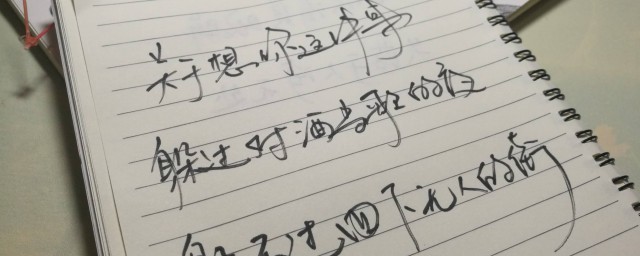 关于想你这件事
躲过对酒当歌的夜
躲不过四下无人的街